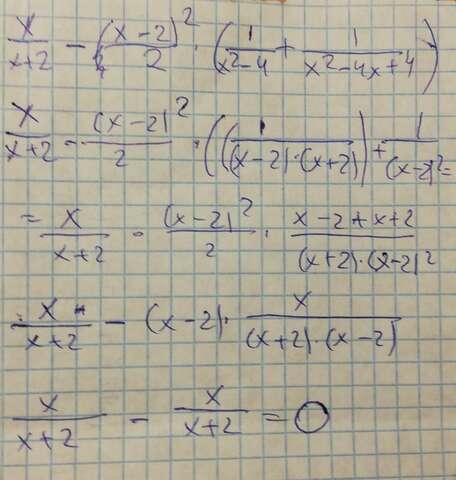 x/(x+2) - (x-2)²/2 · (1/(x²-4) + 1/(x²-4x+4))
x/(x+2) - (x-2)²/2 · ((1/((x-2)·(x+2))) + 1/(x-2)² =
= x/(x+2) - (x-2)²/2 · (x-2+x+2)/((x+2)·(x-2)²
x/(x+2) - (x-2)· x/((x+2)·(x-2)
x/(x+2) - x/(x+2) = 0